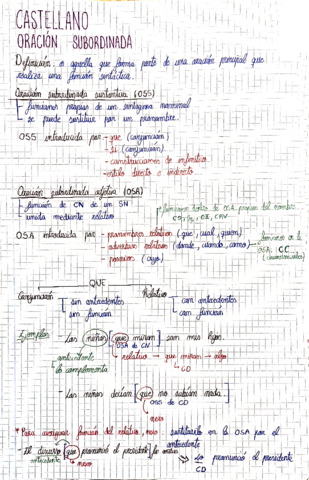 CASTELLANO
ORACIÓN SUBORDINADA
Definición: o aquella que forma parte de una oración principal que
realiza una función sintáctica.
Oración subordinada sustantiva (OSS)
funciones propias de un sintagma nominal
se puede sustituir por un pronombre.
OSS introducida por - que (conjunción)
- si (conjunción)
- construcciones de infinitivo
- estilo directo e indirecto
Oración subordinada adjetiva (OSA)
- función de CN de un SN
- unida mediante relativo
funciones dentro de OSA propias del nombre
CD, CRV
OSA introducida por - pronombres relativos (que, cual, quien)
- adverbios relativos (donde, cuando, como)
funciones en la
OSA: CC
- posesivos (cuyo)
QUE
Conjunción
sin antecedentes
sin función
Relativo
con antecedentes
con función
Ejemplos
- Las niñas [que miran] son mis hijas.
OSA de CN
antecedente
lo complementa
relativo → que miran → algo
CD
- Las niñas decían [que no sabían nada.]
OSS de CD
nexo
* Para averiguar función del relativo, nexo sustituirlo en la OSA por el
antecedente
- El discurso [que pronunció el presidente]
antecedente
nexo
⇒ Lo pronunció el presidente
CD